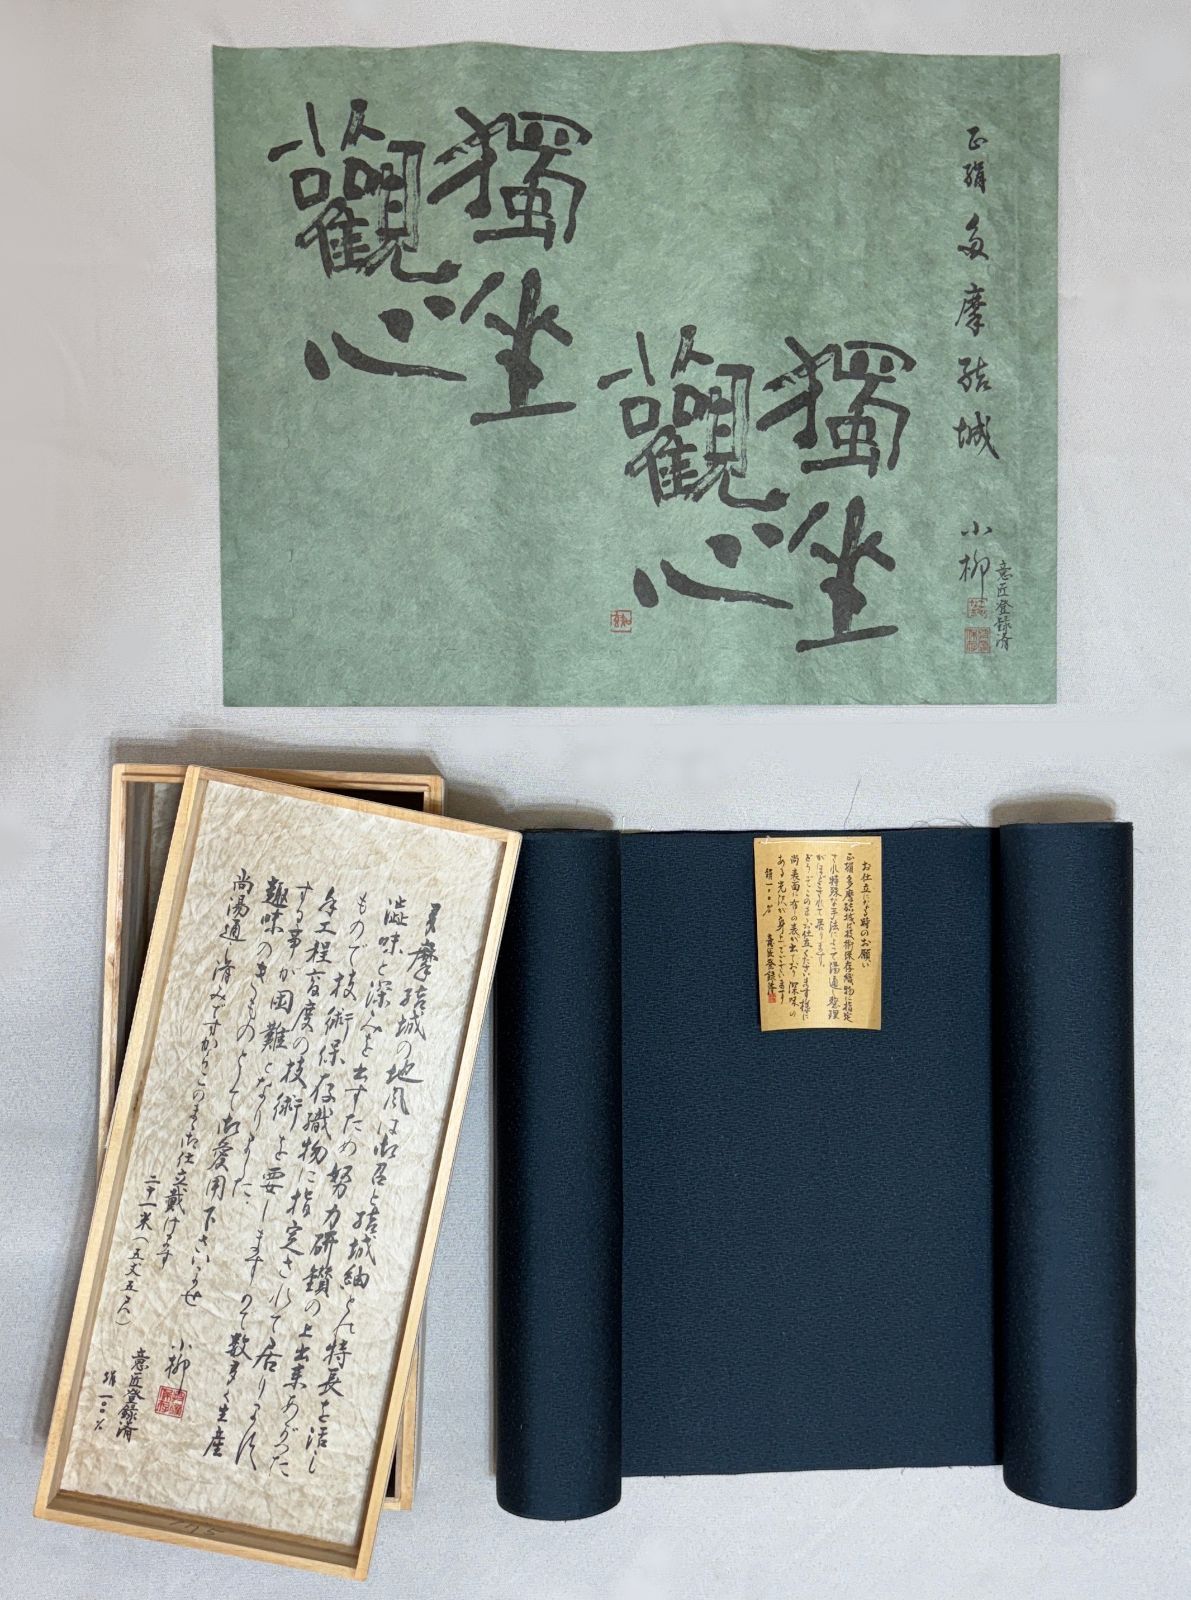 正絹 多摩結城 小柳
意匠登録済
獨坐
觀心
獨坐
觀心
多摩結城の地風は御召と結城紬との特長を活し
澁味と深みを出すため努力研鑽の上出来あがった
もので技術保存織物に指定されて居ります
全工程高度の技術を要しますので数多く生産
する事が困難となりました
趣味のきものとして御愛用下さいませ
尚湯通し済みですからこのまゝ御仕立戴けます
小柳
二十一米(五丈五尺)
意匠登録済
絹一〇〇%
お仕立になる時のお願い
正絹多摩結城は技術保存織物に指定
され特殊な手法によって湯通し整理
がほどこされて居ります。
どうぞこのまゝお仕立くださいます様に
尚表面に布の表が出ており深味の
ある光沢が身上でございます
絹一〇〇% 意匠登録済